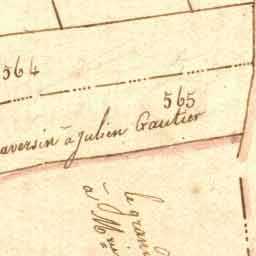 564
565
aversin à julien Gautier
le gran
à M